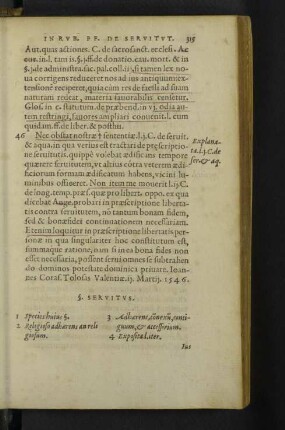 IN RVB. FF. DE SERVITVT. 315
Aut. quas actiones. C. de sacrosanct. ecclesi. Ac
cur. in l. tam is §. j. ff. de donatio. cau. mort. & in
§. jade administra. sac. pal. coll. ij. si tamen lex no
ua corrigens reduceret nos ad ius antiquum exten
sionem reciperet, quia cum res de facili ad suam
naturam rocat, materia fauorabilis censetur.
Glos. in c. statutum. de præbend. in vj. odia au
tem restringi, fauores ampliari conuenit. l. cum
quidam. ff. de liber. & posthu.
46 Nec obstat nostræ sententiæ. l. j. C. de seruit.
& aqua. in qua verius est tractari de pręscriptio
ne seruitutis, quippe volebat ædificans tempore
quærere seruitutem, vt altius cõtra veterem ædi
ficiorum formam ædificatum habens, vicini lu
minibus officeret. Non item me mouet l. ij. C.
de long. temp. præs. quæ pro liber. oppo. ex qua
dicebat Auge. probari in præscriptione libertatis
contra seruitutem, no tantum bonam fidem,
sed & bonæ fidei continuationem necessariam.
Et enim loquitur in præscriptione libertatis per
sonæ in qua singulariter hoc constitutum est,
summaque ratione, num si in ea bona fides non
esset necessaria, possent serui omnes se subtrahen
do dominos potestate dominica priuare. Ioan
nes Coras. Tolosas Valentiæ. ij. Martij. 1546.
Explana
ta. l. j. C. de
ser. & aq.
§. SERVITVS.
1 Species huius §.
2 Religioso adhærens an reli
giosum.
3 Adhærens, connexũ, conti
guum, & accessorium.
4 Exposita l. iter.